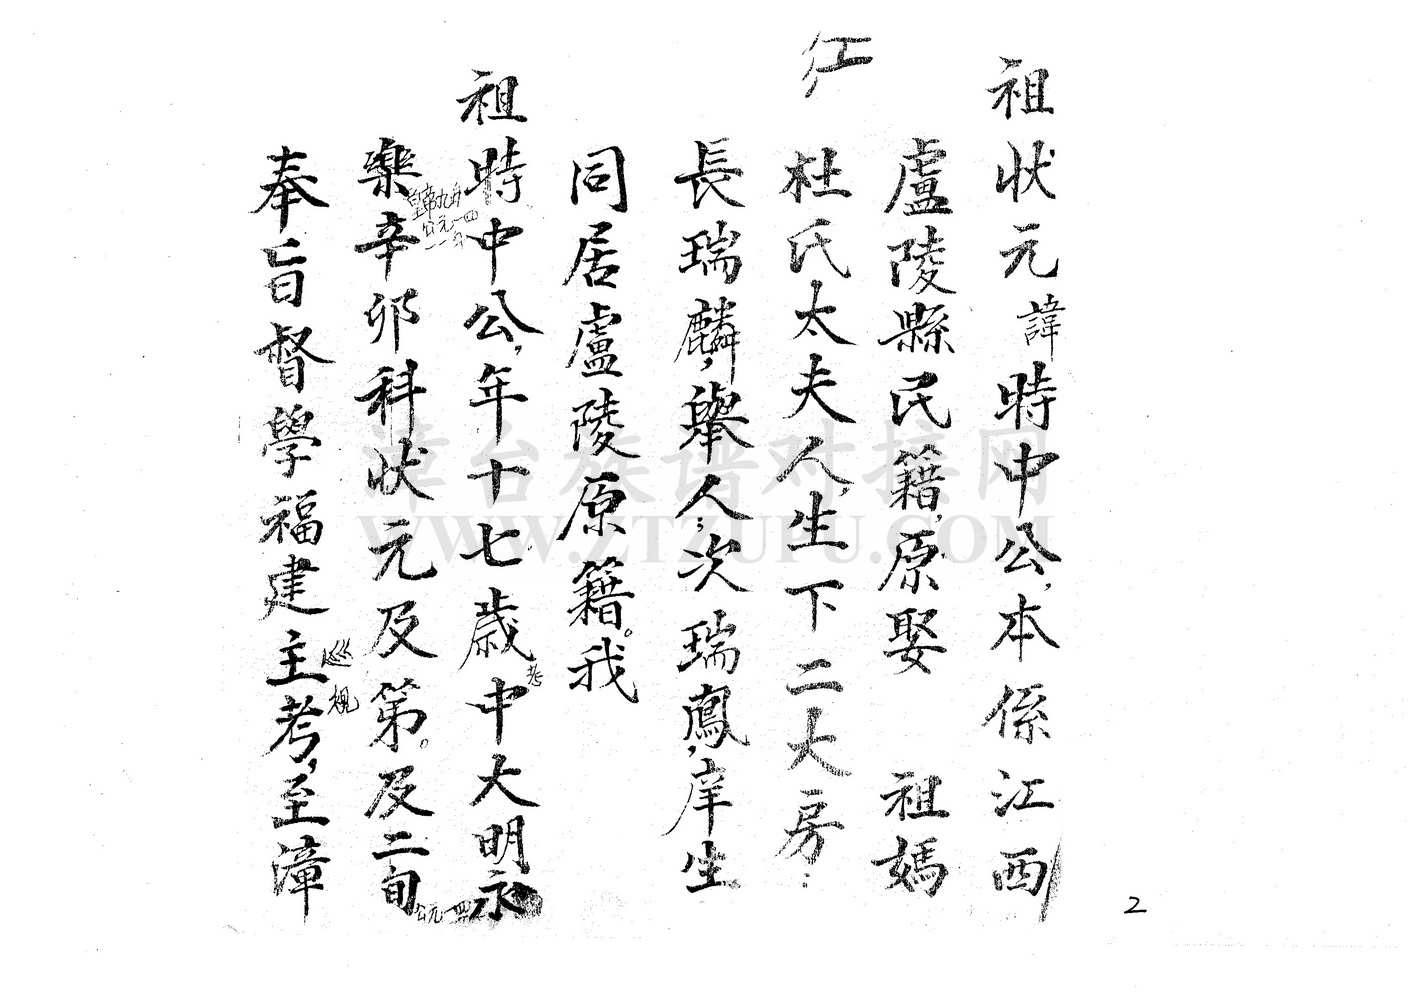 祖状元諱時中公，本係江西
盧陵縣民籍，原娶　祖媽
杜氏太夫人，生下二大房：
長瑞麟，舉人；次瑞鳳，庠生
同居盧陵原籍。我
祖時中公，年十七歲中大明永
樂辛卯科状元及第。及二旬
奉旨督學福建主考，至漳
巡視
2
漳台族谱对接网
WWW.ZTZUPU.COM